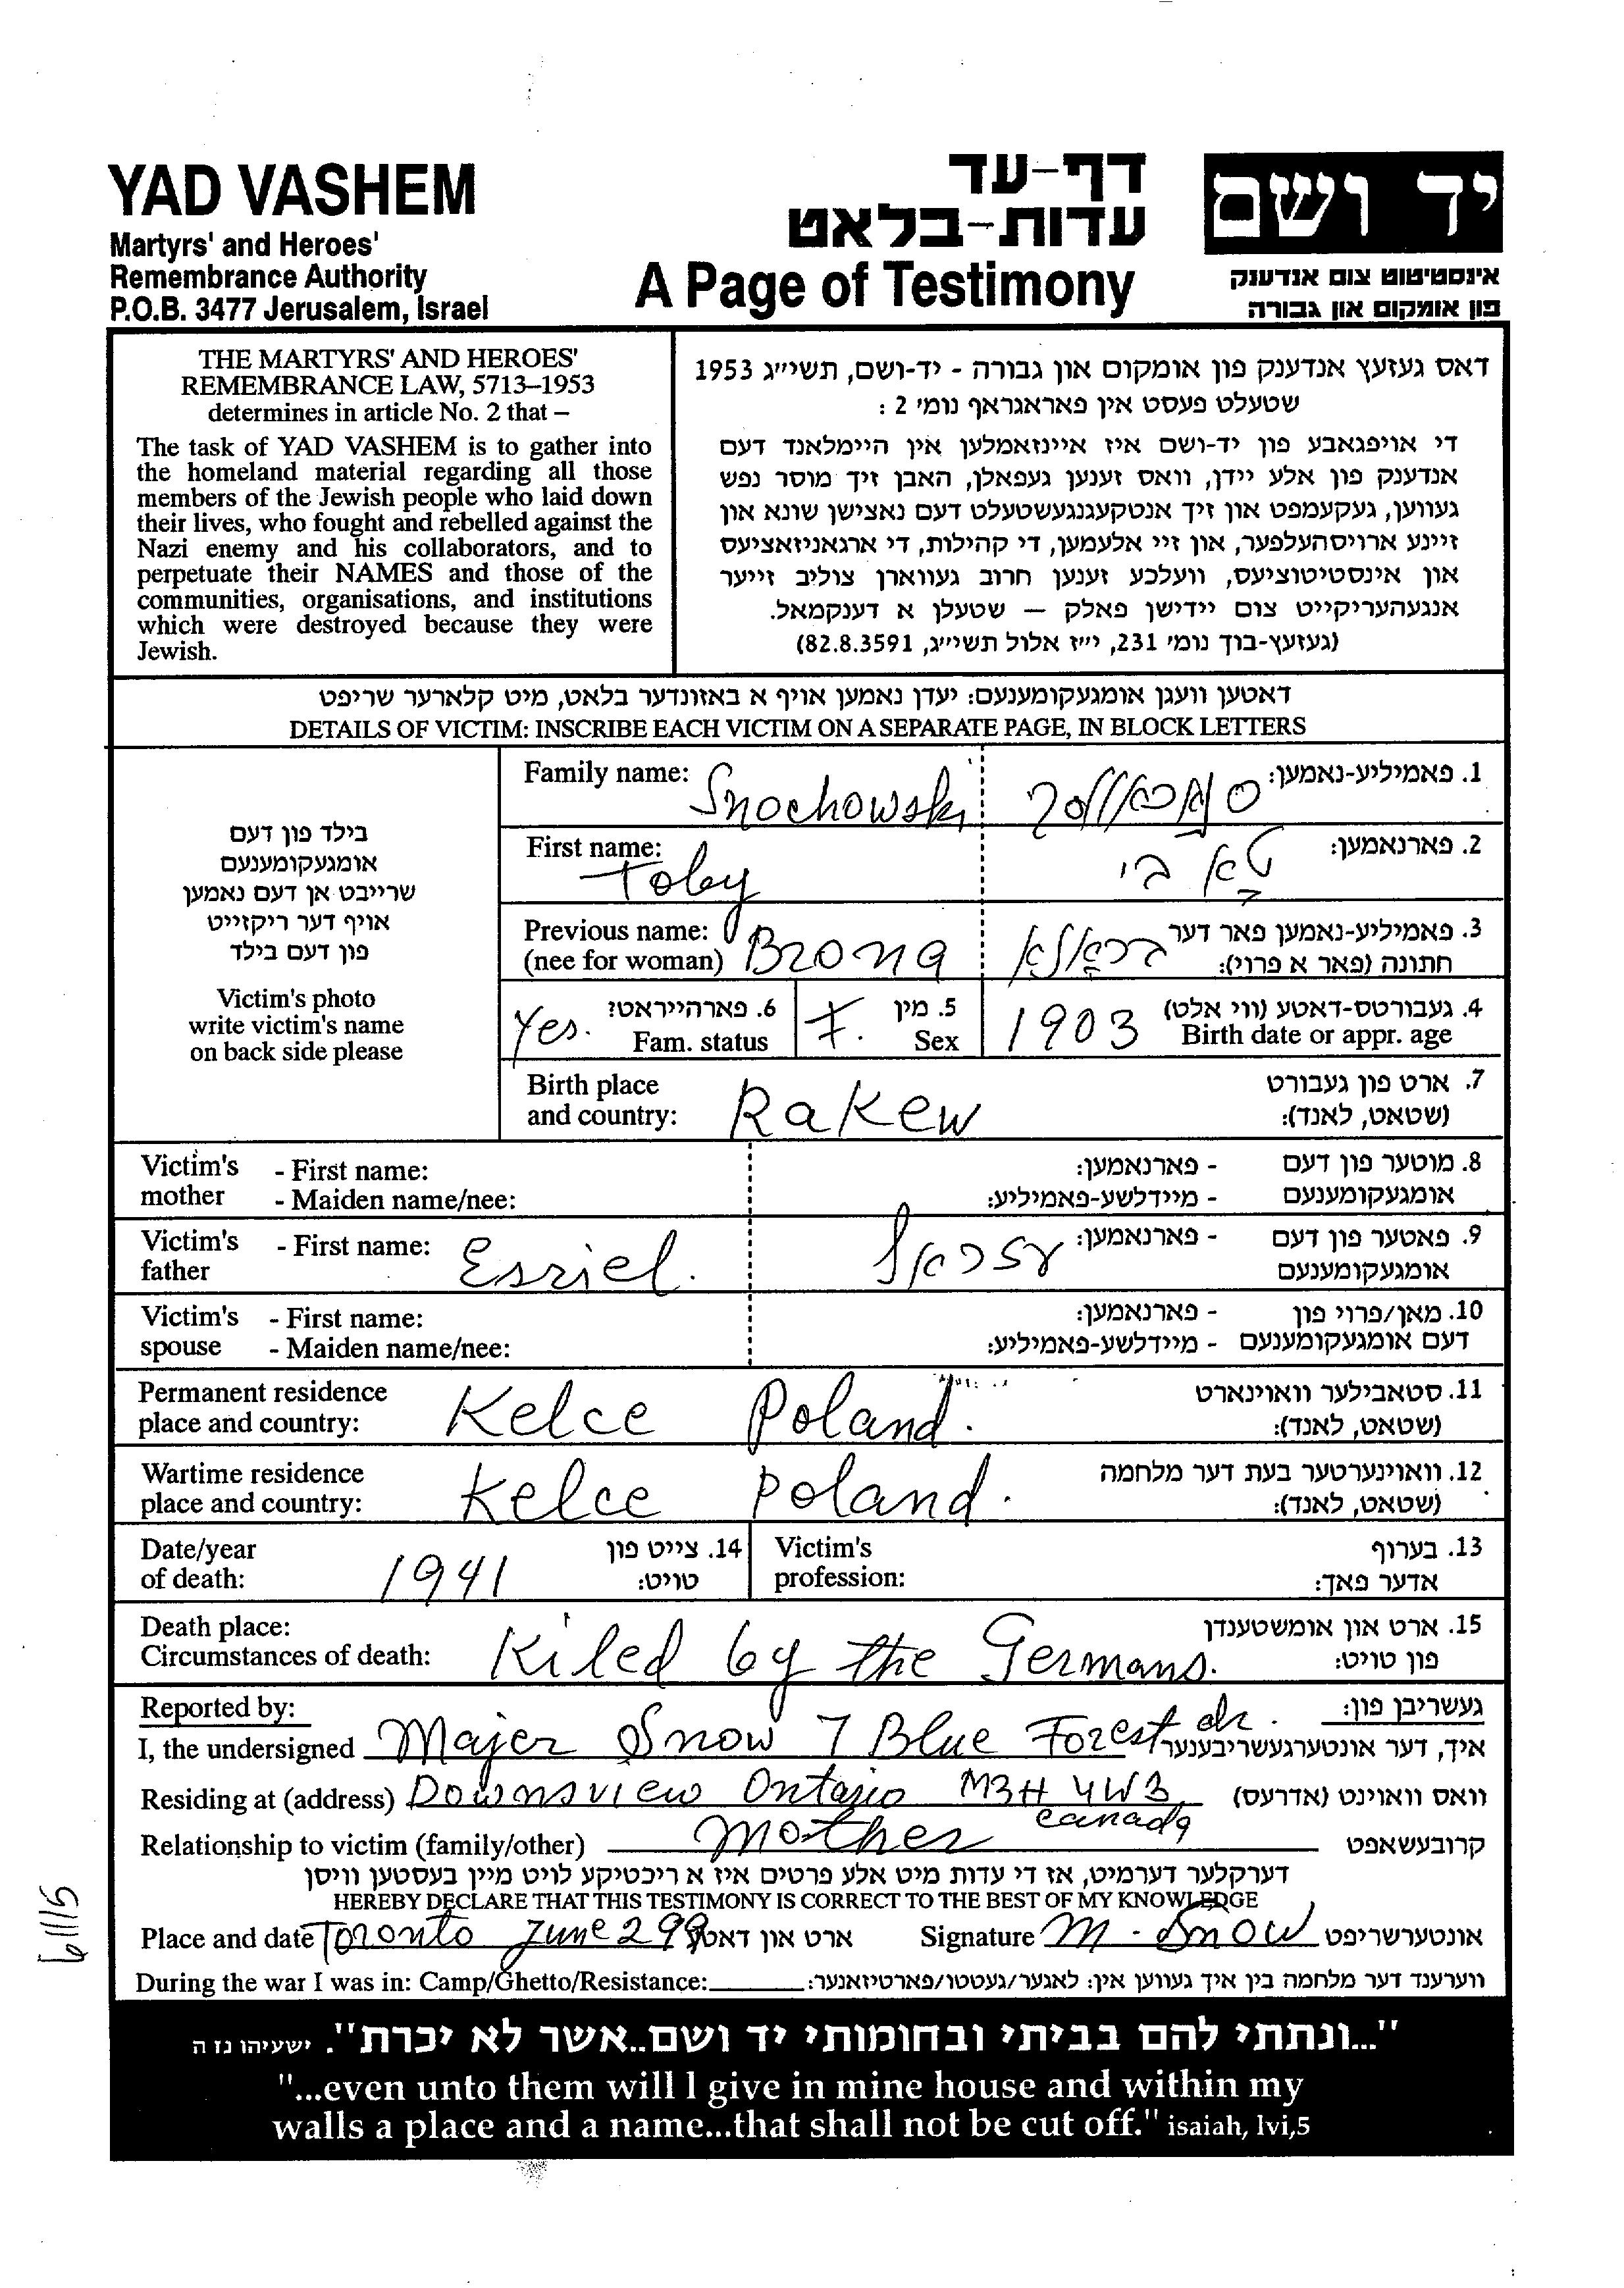 YAD VASHEM
Martyrs' and Heroes'
Remembrance Authority
P.O.B. 3477 Jerusalem, Israel
דף-עד
עדות-בלאט
A Page of Testimony
יד ושם
אינסטיטוט צום אנדענק
פון אומקום און גבורה
THE MARTYRS' AND HEROES'
REMEMBRANCE LAW, 5713–1953
determines in article No. 2 that –
The task of YAD VASHEM is to gather into
the homeland material regarding all those
members of the Jewish people who laid down
their lives, who fought and rebelled against the
Nazi enemy and his collaborators, and to
perpetuate their NAMES and those of the
communities, organisations, and institutions
which were destroyed because they were
Jewish.
דאס געזעץ אנדענק פון אומקום און גבורה - יד-ושם, תשי״ג 1953
שטעלט פעסט אין פאראגראף נומ׳ 2 :
די אויפגאבע פון יד-ושם איז איינזאמלען אין היימלאנד דעם
אנדענק פון אלע יידן, וואס זענען געפאלן, האבן זיך מוסר נפש
געווען, געקעמפט און זיך אנטקעגנגעשטעלט דעם נאצישן שונא און
זיינע ארויסהעלפער, און זיי אלעמען, די קהילות, די ארגאניזאציעס
און אינסטיטוציעס, וועלכע זענען חרוב געווארן צוליב זייער
אנגעהעריקייט צום יידישן פאלק — שטעלן א דענקמאל.
(געזעץ-בוך נומ׳ 231, י״ז אלול תשי״ג, 82.8.3591)
דאטען וועגן אומגעקומענעם: יעדן נאמען אויף א באזונדער בלאט, מיט קלארער שריפט
DETAILS OF VICTIM: INSCRIBE EACH VICTIM ON A SEPARATE PAGE, IN BLOCK LETTERS
בילד פון דעם
אומגעקומענעם
שרייבט אן דעם נאמען
אויף דער ריקזייט
פון דעם בילד
Victim's photo
write victim's name
on back side please
Family name: Snochowski 1. פאמיליע-נאמען:
First name: Toby טא בי 2. פארנאמען:
Previous name: (nee for woman) Brona 3. פאמיליע-נאמען פאר דער
חתונה (פאר א פרוי):
Yes. 6. פארהייראט? Fam. status F. 5. מין Sex 1903 4. געבורטס-דאטע (ווי אלט)
Birth date or appr. age
Birth place 7. ארט פון געבורט
and country: Rakew (שטאט, לאנד):
Victim's - First name: - פארנאמען: 8. מוטער פון דעם
mother - Maiden name/nee: - מיידלשע-פאמיליע: אומגעקומענעם
Victim's - First name: Esriel. - פארנאמען: 9. פאטער פון דעם
father אומגעקומענעם
Victim's - First name: - פארנאמען: 10. מאן/פרוי פון
spouse - Maiden name/nee: - מיידלשע-פאמיליע: דעם אומגעקומענעם
Permanent residence 11. סטאבילער וואוינארט
place and country: Kelce Poland. (שטאט, לאנד):
Wartime residence 12. וואוינערטער בעת דער מלחמה
place and country: Kelce Poland. (שטאט, לאנד):
Date/year 14. צייט פון Victim's 13. בערוף
of death: 1941 טויט: profession: אדער פאך:
Death place: 15. ארט און אומשטענדן
Circumstances of death: Kiled by the Germans. פון טויט:
Reported by: געשריבן פון:
I, the undersigned Majer Snow 7 Blue Forest dr. איך, דער אונטערגעשריבענער
Residing at (address) Downsview Ontario M3H 4W3 וואס וואוינט (אדרעס)
canada
Relationship to victim (family/other) mother קרובעשאפט
דערקלער דערמיט, אז די עדות מיט אלע פרטים איז א ריכטיקע לויט מיין בעסטען וויסן
HEREBY DECLARE THAT THIS TESTIMONY IS CORRECT TO THE BEST OF MY KNOWLEDGE
Place and date Toronto June 2 99 ארט און דאטע Signature M. Snow אונטערשריפט
During the war I was in: Camp/Ghetto/Resistance: ווערענד דער מלחמה בין איך געווען אין: לאגער/געטטו/פארטיזאנער:
"...ונתתי להם בביתי ובחומותי יד ושם..אשר לא יכרת". ישעיהו נז ה
"...even unto them will I give in mine house and within my
walls a place and a name...that shall not be cut off." isaiah, lvi,5